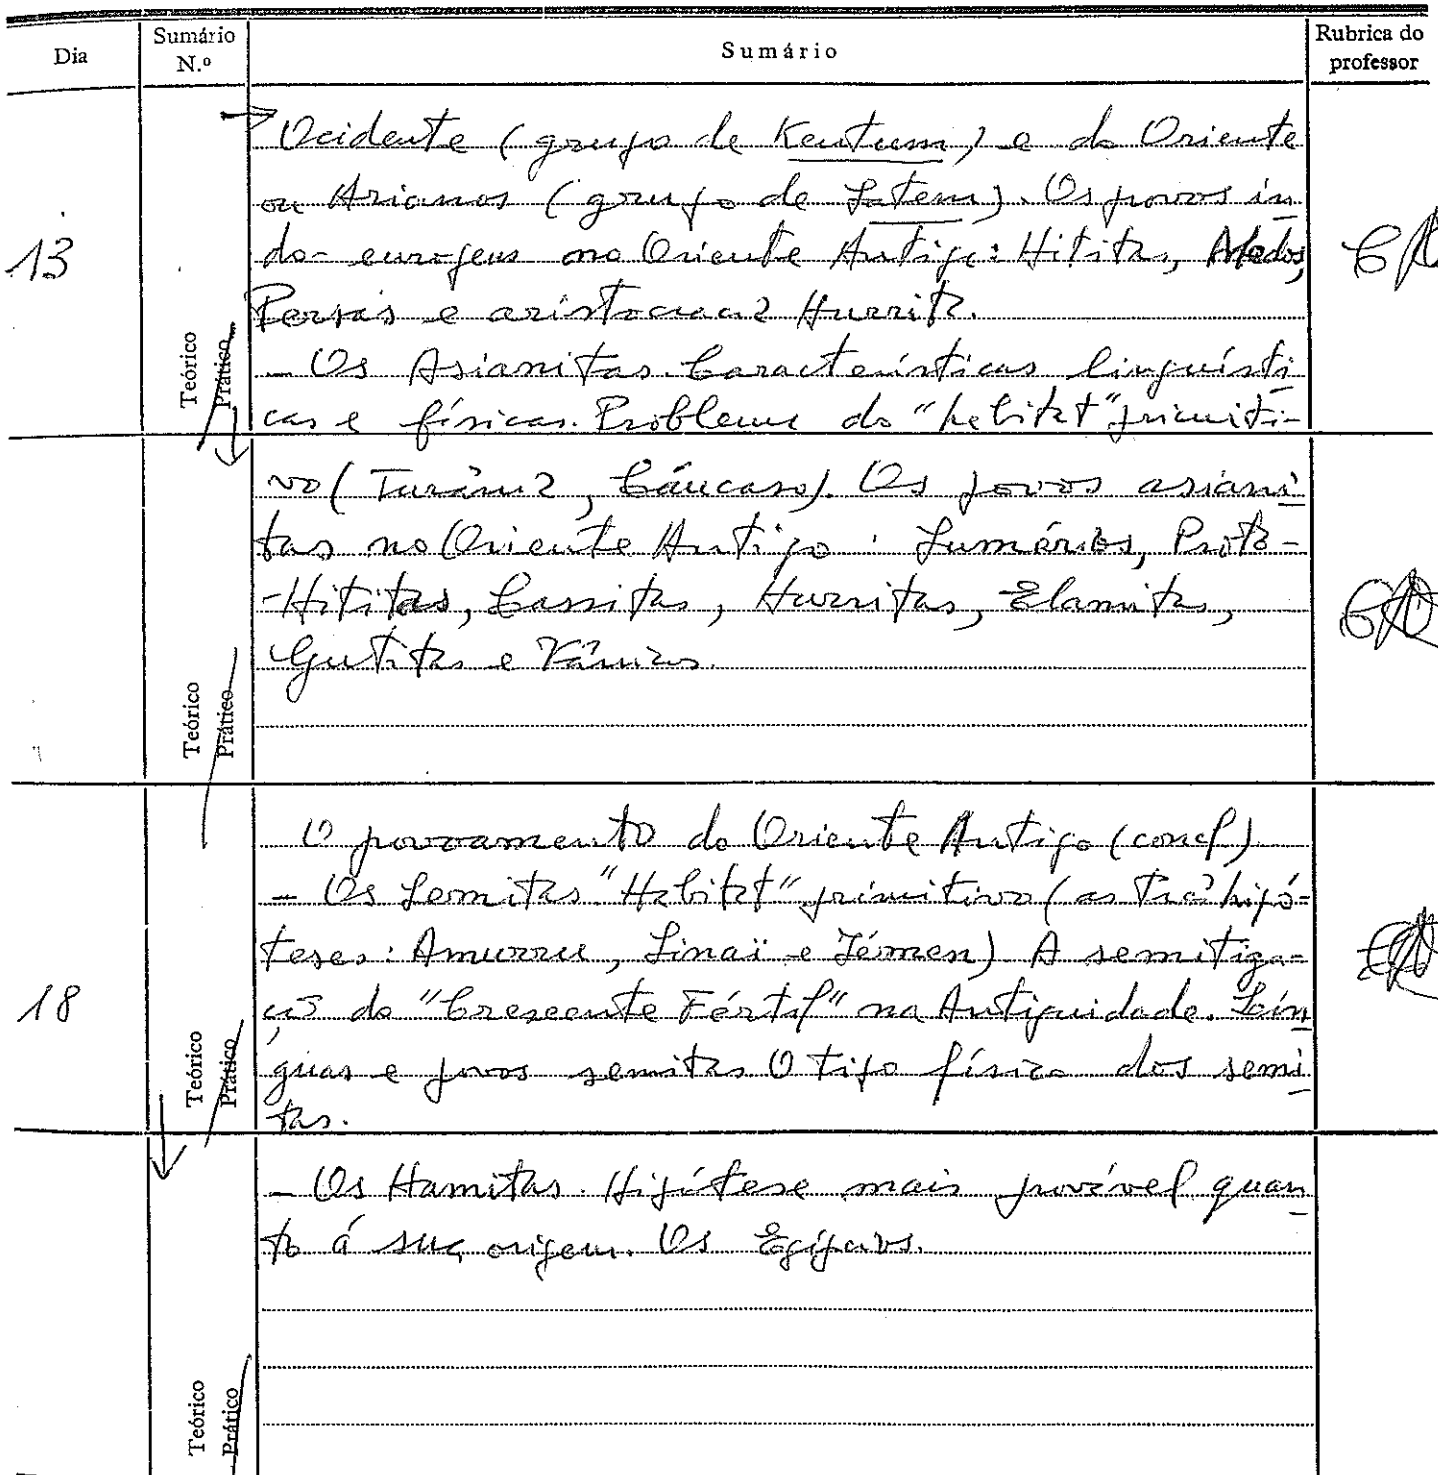 Dia
Sumário N.º
Sumário
Rubrica do professor
Ocidente (grupo de Kentum) e do Oriente
ou Arianos (grupo de Satem). Os povos in
13
do-europeus no Oriente Antigo: Hititas, Medos,
Persas e aristocracia Hurrita.
Teórico
Prático
- Os Asianitas. Características linguísti
cas e físicas. Problema do "habitat" primiti-
vo (Turânia, Cáucaso). Os povos asiani
tas no Oriente Antigo: Sumérios, Proto-
-Hititas, Cassitas, Hurritas, Elamitas,
Gutitas e Vânicos.
Teórico
Prático
O povoamento do Oriente Antigo (concl.)
- Os Semitas "Habitat" primitivo (as três hipó-
teses: Amurru, Sinaï e Iémen). A semitiza-
18
ção do "Crescente Fértil" na Antiguidade. Lín
guas e povos semitas. O tipo físico dos semi
tas.
Teórico
Prático
- Os Hamitas. Hipótese mais provável quan
to á sua origem. Os Egípcios.
Teórico
Prático